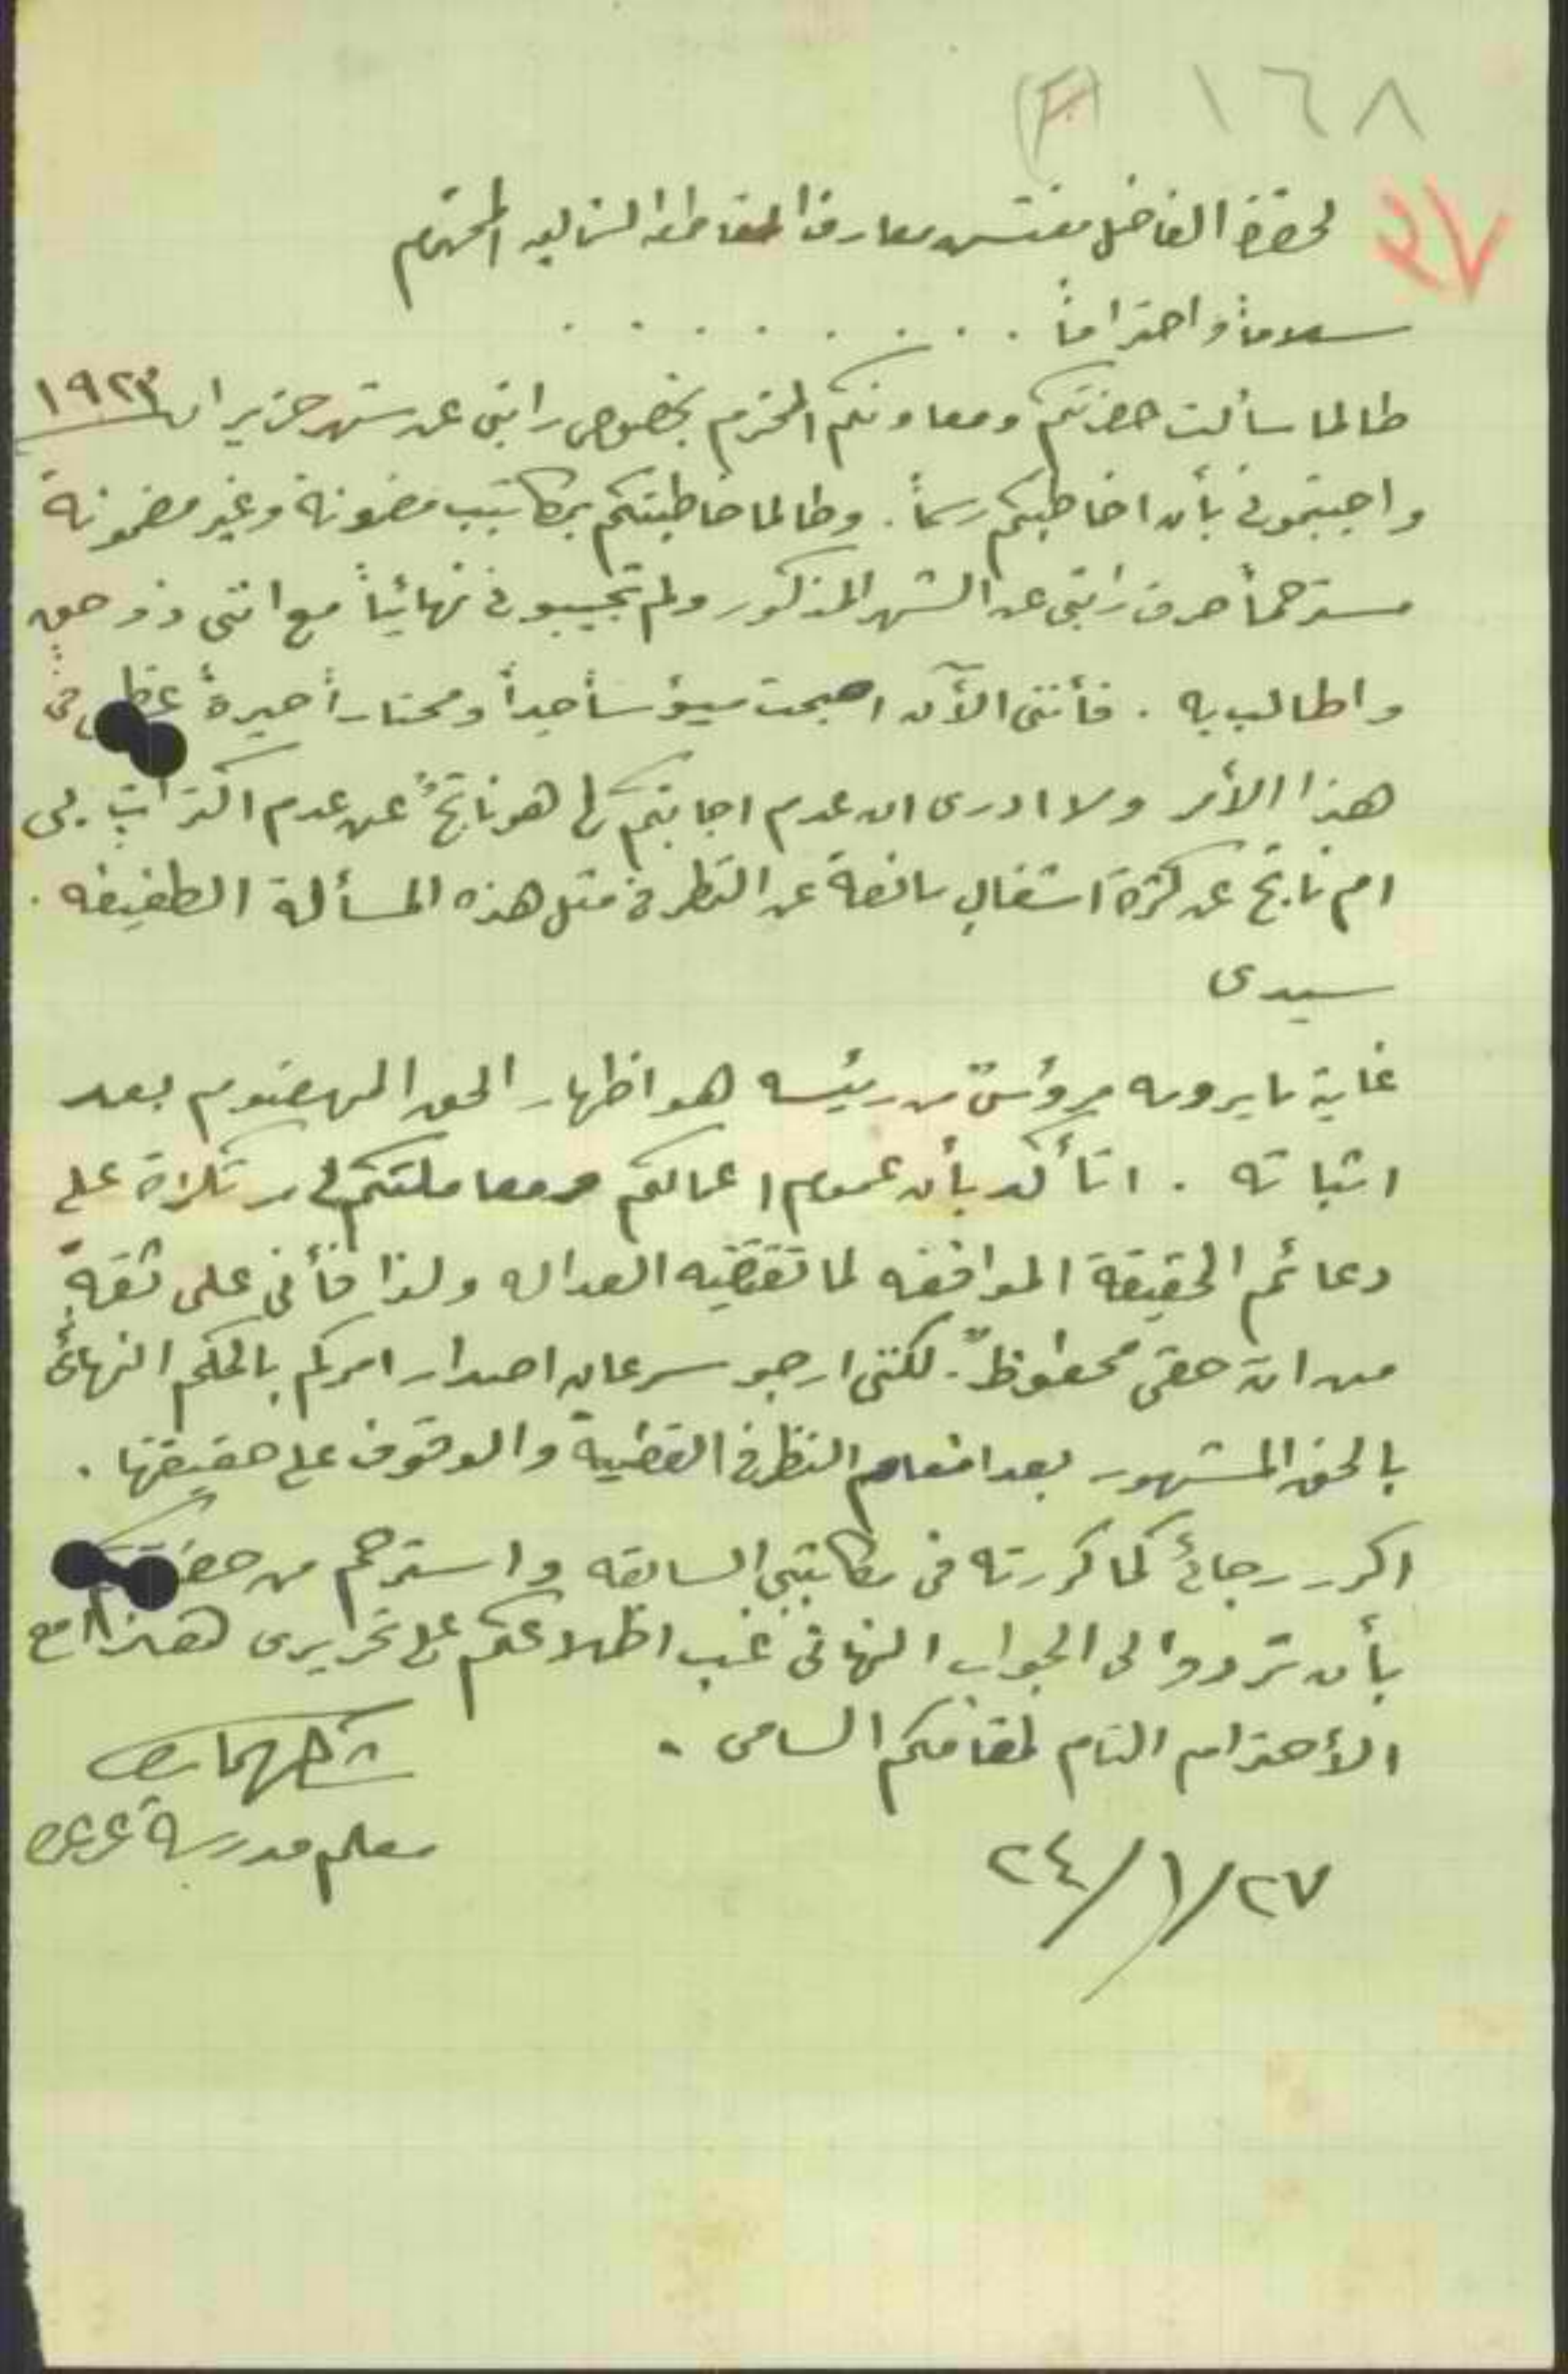 ١٦٨
٣٧
لحضرة الفاضل مفتش معارف المقاطعه الشماليه المحترم
سلاماً واحتراماً . . . . . . . .
طالما سألت حضرتكم ومعاونكم المحترم بخصوص راتبي عن شهر حزيران ١٩٢٣
واجبتموني بأن اخاطبكم رسماً . وطالما خاطبتكم بمكاتيب مضمونة وغير مضمونة
مسترحماً صرف راتبي عن الشهر المذكور ولم تجيبوني نهائياً مع انني ذو حقٍ
واطالب به . فأنني الآن اصبحت ميؤساً جداً ومحتاراً حيرةً عظمى في
هذا الأمر ولا ادري ان عدم اجابتكم لي هو ناتجٌ عن عدم اكتراثٍ بي
ام ناتج عن كثرة اشغالٍ مانعة عن النظر في مثل هذه المسألة الطفيفه .
سيدي
غاية ما يرومه مرؤسٌ من رئيسه هو اظهار الحق المهضوم بعد
اثباته . اتأكد بأن عموم اعمالكم ومعاملتكم لي مرتكزة على
دعائم الحقيقة الموافقه لما تقتضيه العداله ولذا فأني على ثقةٍ
من ان حقي محفوظٌ . لكنني ارجو سرعان اصدار امركم بالحكم النهائي
بالحق المشهور بعد انعام النظر في القضية والوقوف على حقيقتها .
اكرر رجائي كما كررته في مكاتيبي السابقه واسترحم من حضرتكم
بأن تردوا لي الجواب النهائي غب اطلاعكم على تحريري هذا مع
الأحترام التام لمقامكم السامي .
معلم مدرسة
٢٧/١/٢٤